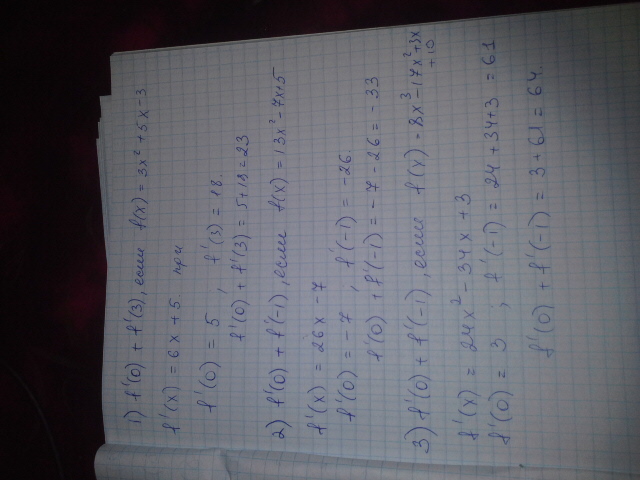 1) f'(0) + f'(3), если f(x) = 3x² + 5x - 3
f'(x) = 6x + 5 при
f'(0) = 5 ; f'(3) = 18.
f'(0) + f'(3) = 5+18 = 23
2) f'(0) + f'(-1), если f(x) = 13x² - 7x+5
f'(x) = 26x - 7
f'(0) = -7 ; f'(-1) = -26.
f'(0) + f'(-1) = -7 - 26 = -33
3) f'(0) + f'(-1), если f(x) = 8x³ - 17x² + 3x
+10
f'(x) = 24x² - 34x + 3
f'(0) = 3 ; f'(-1) = 24 + 34+3 = 61
f'(0) + f'(-1) = 3 + 61 = 64.